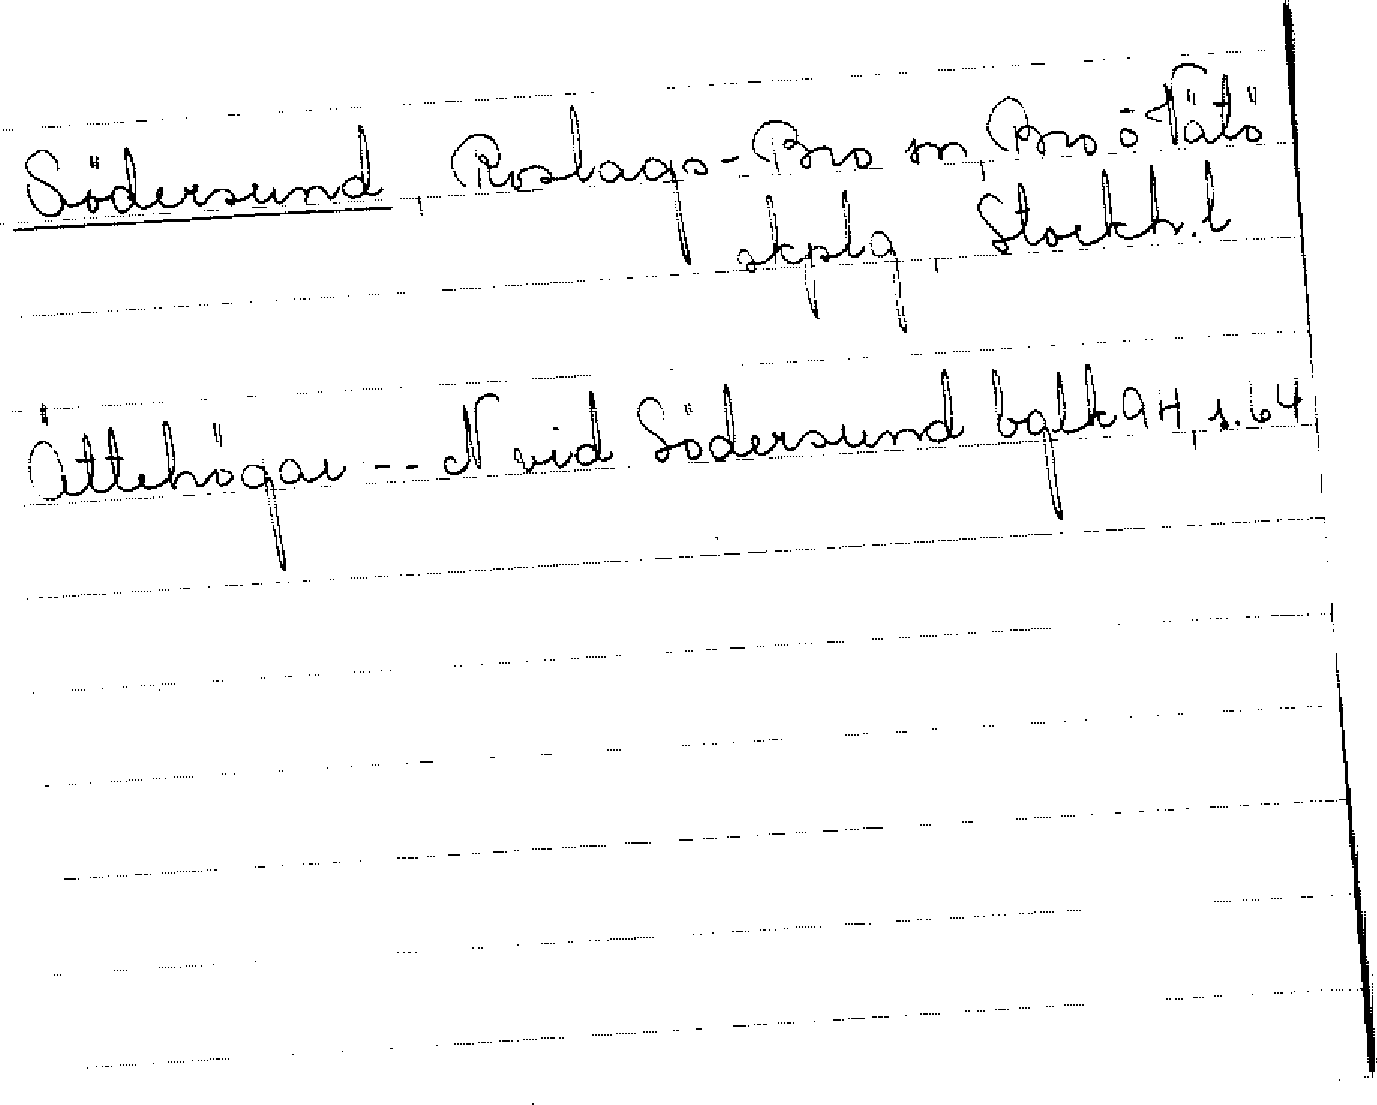 Södersund, Roslags-Bro sn, Bro ö Vätö
skplg, Stockh. l
Ättehögar -- N vid Södersund bglk 94, s. 64